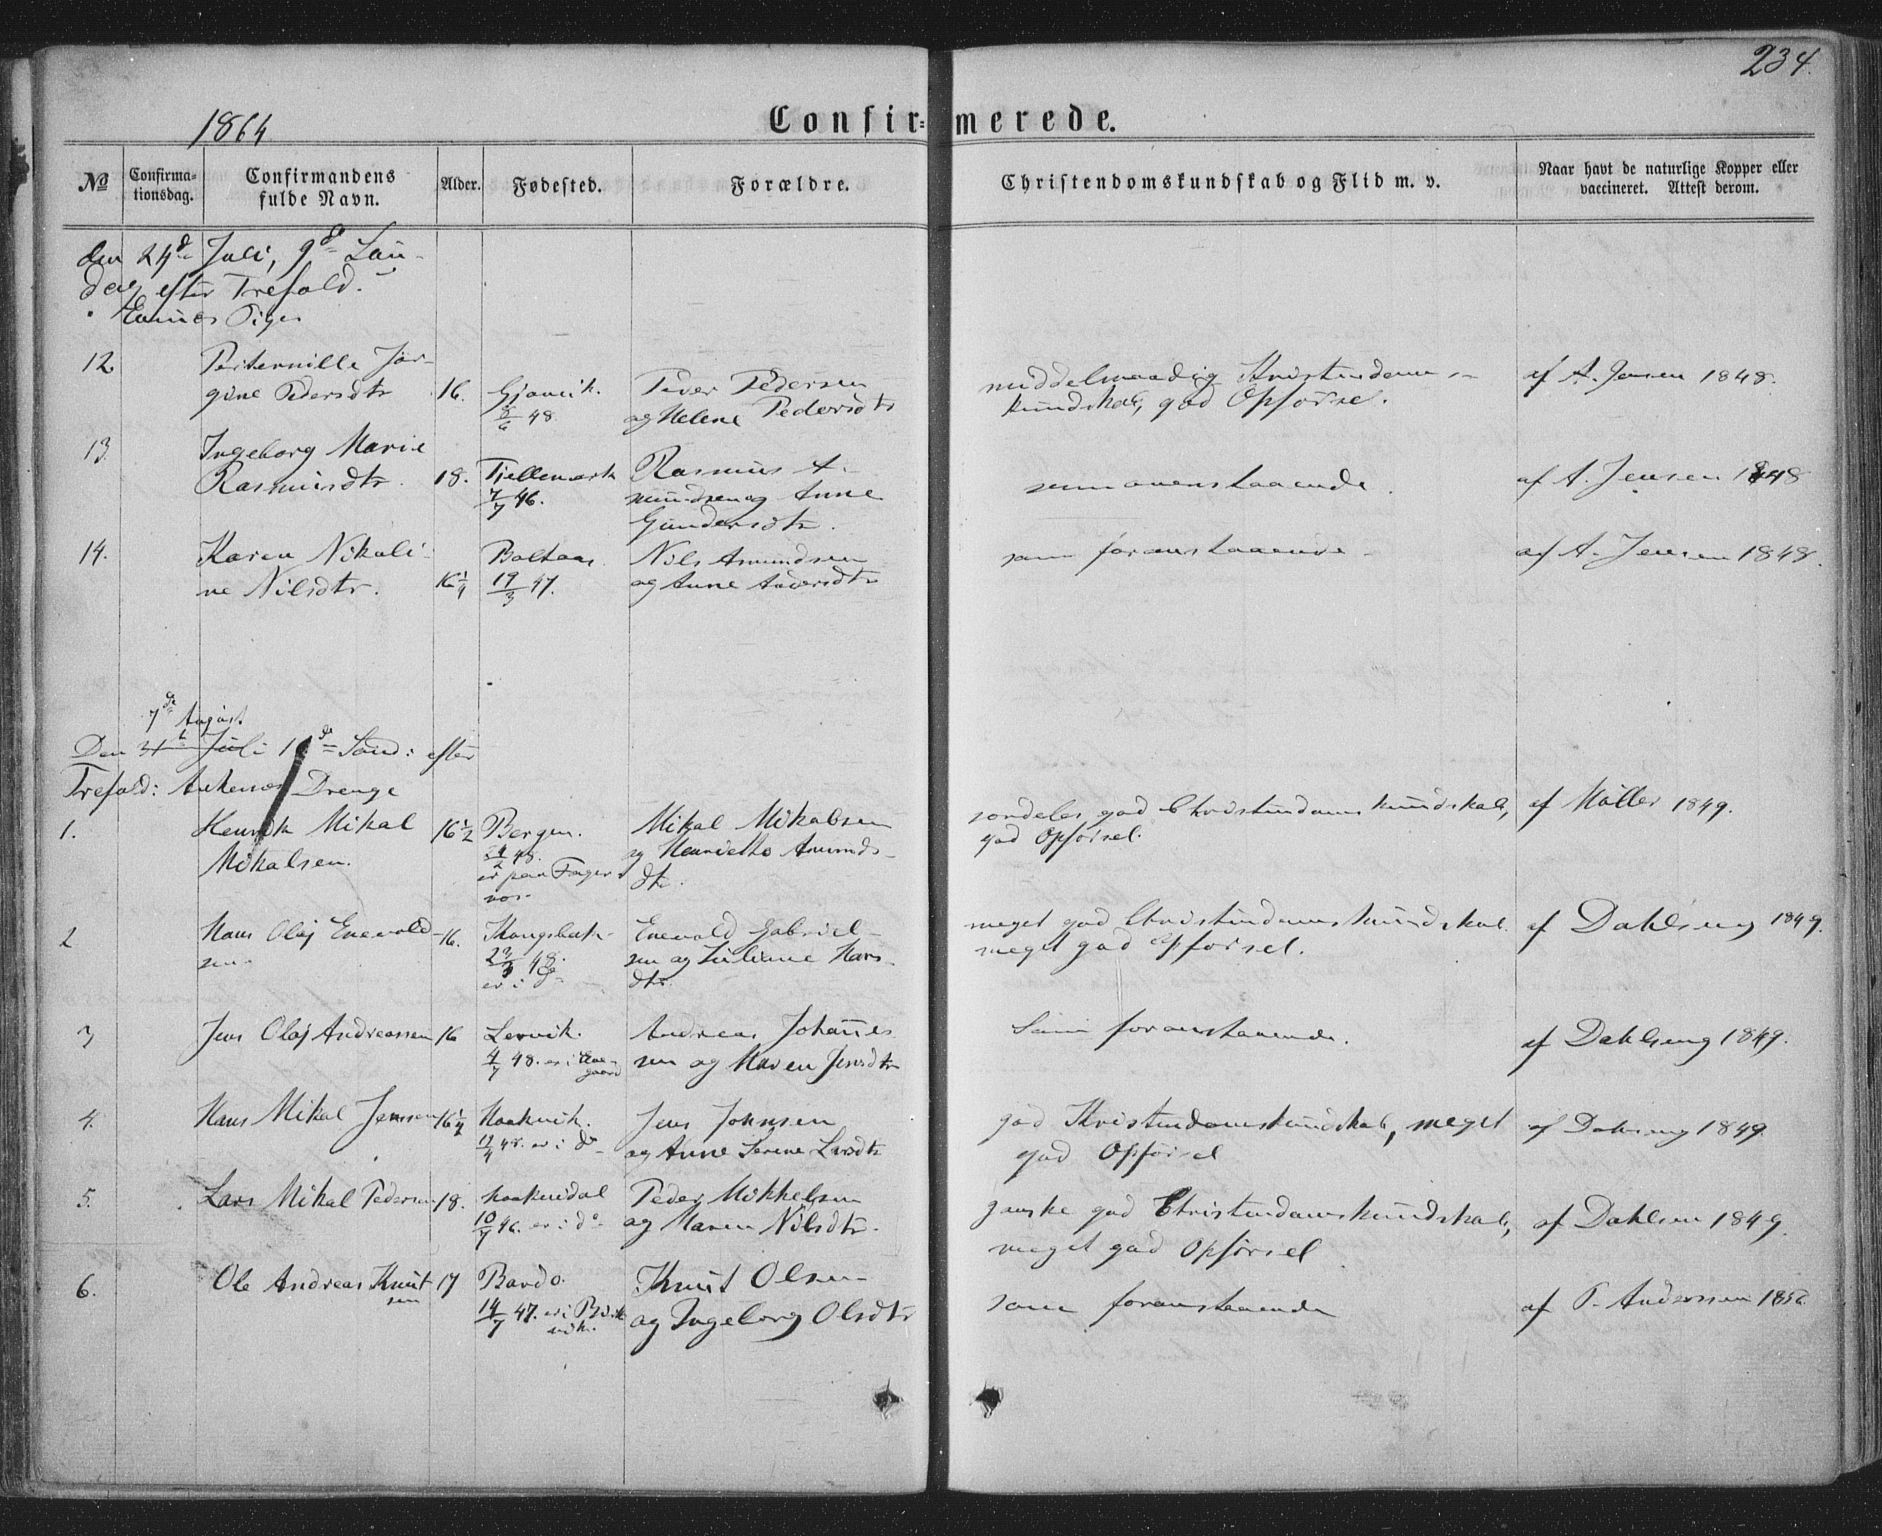 234.
1864
Confir= merede.
No
Confirma-
tionsdag.
Confirmandens
fulde Navn.
Alder.
Fødested.
Forældre.
Christendomskundskab og Flid m. v.
Naar havt de naturlige Kopper eller
vaccineret. Attest derom.
den 24de Juli, 9de Søn-
dag efter Trefold.
Piger
12 Peternille Jør-
gine Pedersdtr 16. Gjøvik. 8/6 48. Peder Pedersen
og Helene Pedersdtr
middelmaadig Kristendoms-
kundskab, god Opførsel.
af A. Jensen 1848.
13. Ingeborg Marie
Rasmusdtr. 18. 7/7 46. Rasmus A-
mundsen og Anne
Gundersdtr.
som ovenstaaende.
af A. Jensen 1848
14. Karen Nikoli-
ne Nilsdtr. 16 1/4 Boltaas. 19/3 47. Nils Amundsen
og Anne Andersdtr
som foranstaaende
af A. Jensen 1848.
7de August
Den 31te Juli 1 de Sønd: efter
Trefold: Ankenes Drenge
1. Henrik Mikal
Mikalsen. 16 1/2 Bergen. 48.
er paa Fager-
nes. Mikal Mikalsen
og Henriette Amunds-
dtr.
særdeles god Christendomskundskab,
god Opførsel.
af Møller 1849.
2 Hans Olaj Enevold-
sen. 16. 23/3 48.
er i do Enevold Gabriel-
sen og Juliane Hans-
dtr.
meget god Christendomskundskab
meget god Opførsel.
af Dahlseng 1849.
3 Jens Olaj Andreassen 16 Lervik.
4/7 48. er i
gaard Andreas Johannes-
sen og Maren Jensdtr
Som foranstaaende.
af Dahlseng 1849.
4. Hans Mikal Jensen 16 1/4 Haakvik.
12/4 48. er i do Jens Johnsen
og Anne Serene Larsdtr
god Kristendomskundskab, meget
god Opførsel
af Dahlseng 1849.
5. Lars Mikal Pedersen 18. Haakvidal
10/7 46. er i do Peder Mikkelsen
og Maren Nilsdtr.
ganske god Christendomskundskab,
meget god Opførsel
af Dahlsen 1849.
6. Ole Andreas Knut-
sen 17 Bardo.
14/7 47. er i
vik. Knut Olsen
og Ingeborg Olsdtr
som foranstaaende
af P. Andersen 1852.